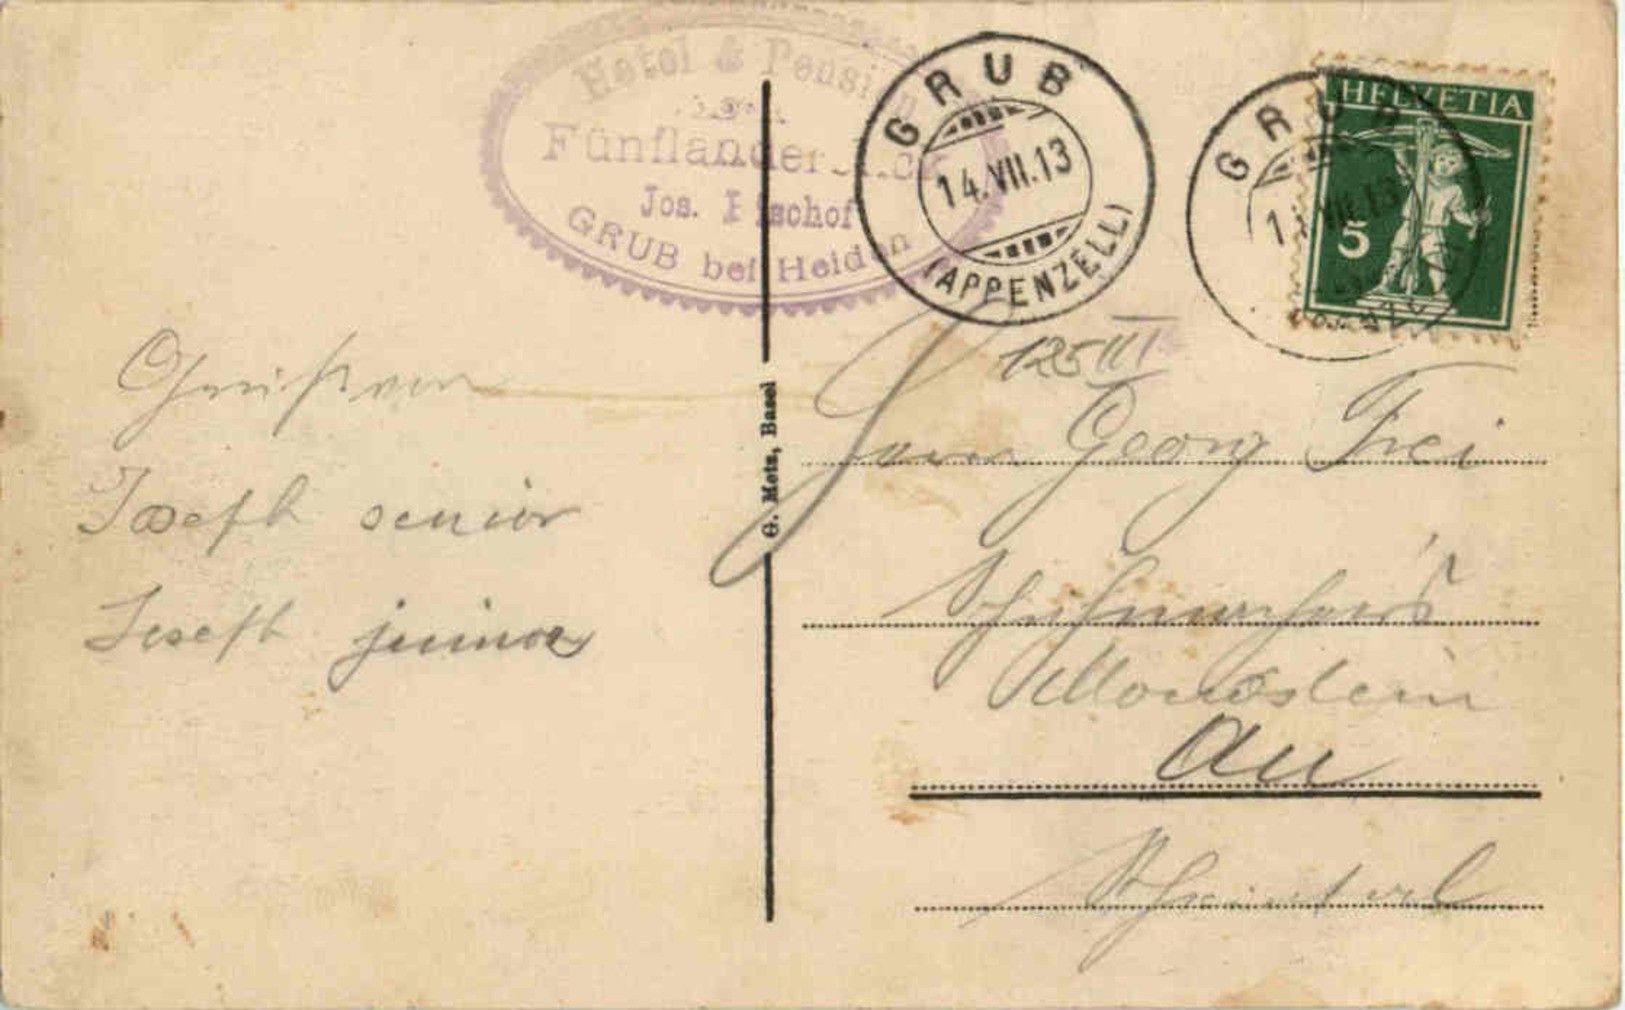 Hotel & Pension
zum
Fünfländerblick
Jos. Bischof
GRUB bei Heiden
GRUB
14.VII.13
(APPENZELL)
GRUB
HELVETIA
5
125 III
G. Metz, Basel
Gruß von
Joseph senior
Joseph junior
Herrn Georg Frei
Monstein
Au
Rheintal